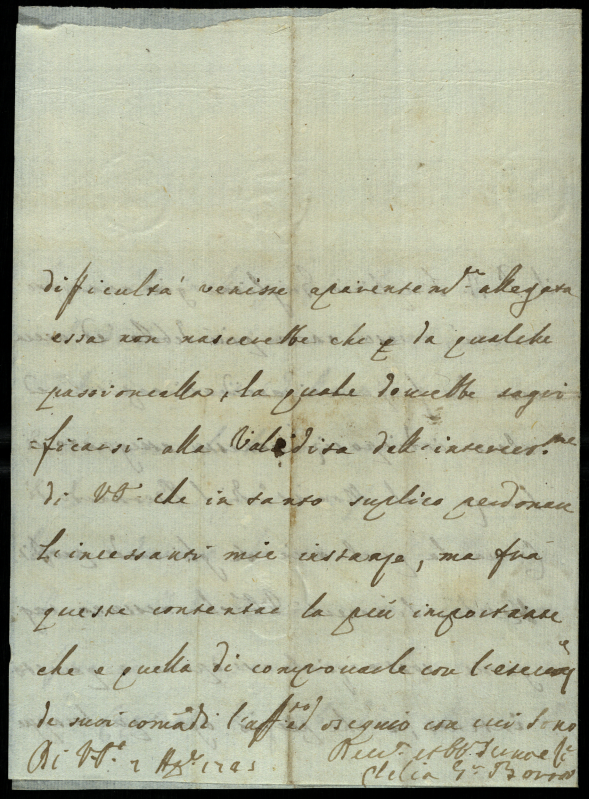 difficultà venisse aparentem.te allegata
essa non nascerebbe che p da qualche
passioncella, la quale dourebbe sagri
ficarsi alla Validita dell'interces.ne
di VS che in tanto suplico perdonare
l'incessanti mie instanze, ma frà
queste contentar la più importante
che e quella di comprouarle con l'esecuz.e
de suoi comādi l'aff.to ed ossequio con cui sono
Di V.S.
Clelia